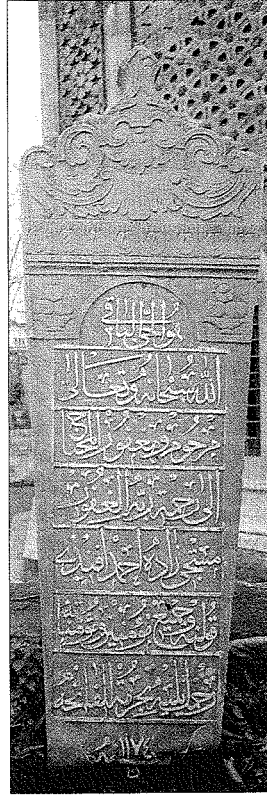 هو الحي الباقي
الله سبحانه وتعالى
مرحوم ومغفور المحتاج
الى رحمة ربه الغفور
زاده احمد افندى
وجميع
ايليه بحرمة الفاتحه
سنه ١١٧٤